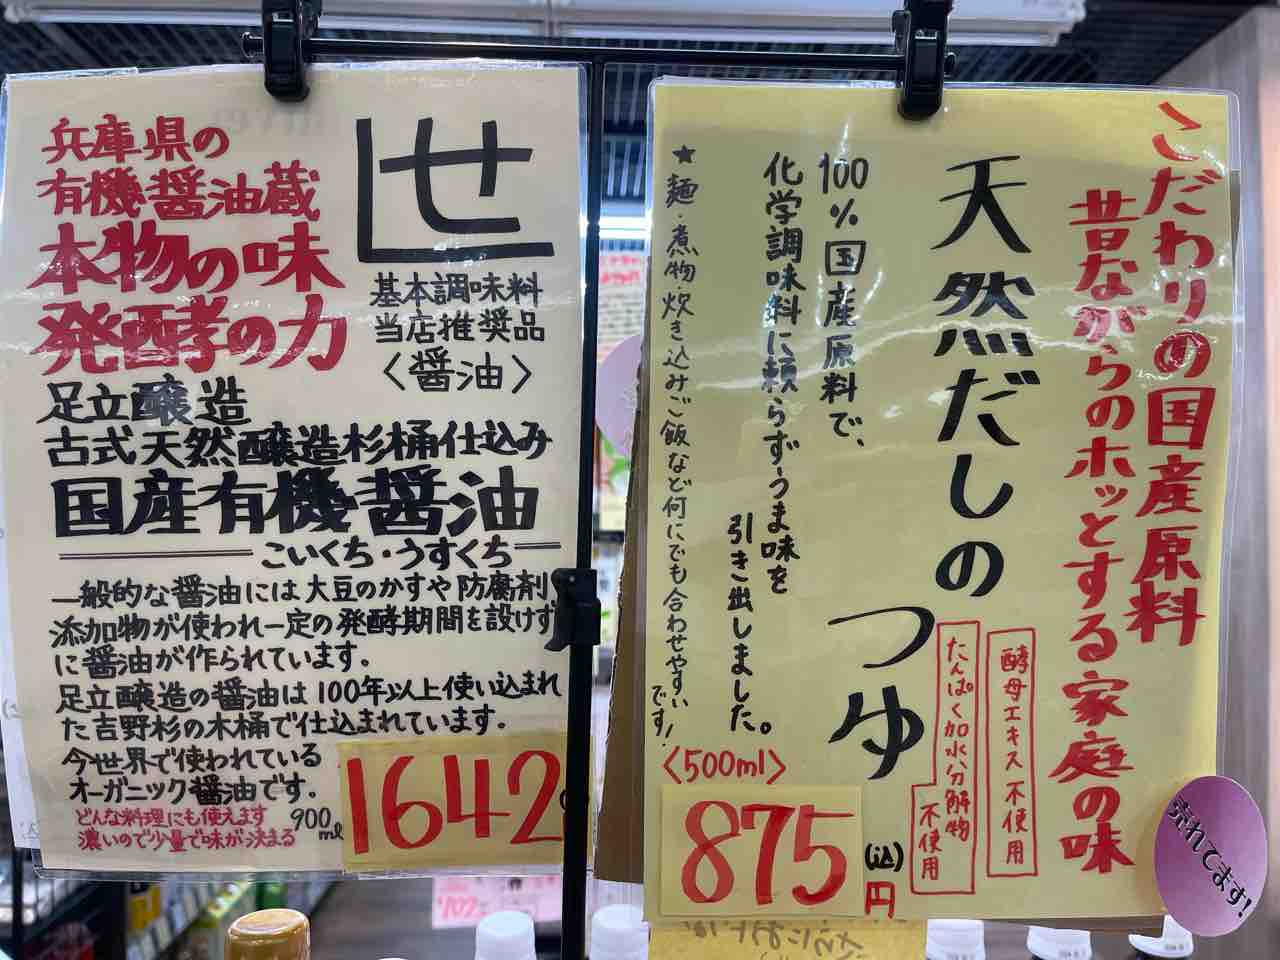 兵庫県の
有機醤油蔵
本物の味
発酵の力
世
基本調味料
当店推奨品
〈醤油〉
足立醸造
古式天然醸造杉桶仕込み
国産有機醤油
こいくち・うすくち
一般的な醤油には大豆のかすや防腐剤、
添加物が使われ一定の発酵期間を設けず
に醤油が作られています。
足立醸造の醤油は100年以上使い込まれ
た吉野杉の木桶で仕込まれています。
今世界で使われている
オーガニック醤油です。
どんな料理にも使えます
濃いので少量で味が決まる
900ml
1642
こだわりの国産原料
昔ながらのホッとする家庭の味
天然だしの
つゆ
酵母エキス不使用
たんぱく加水分解物
不使用
100%国産原料で、
化学調味料に頼らずうま味を
引き出しました。
★麺・煮物・炊き込みご飯など何にでも合わせやすい
です!
〈500ml〉
875
(込)
円
売れてます!
702